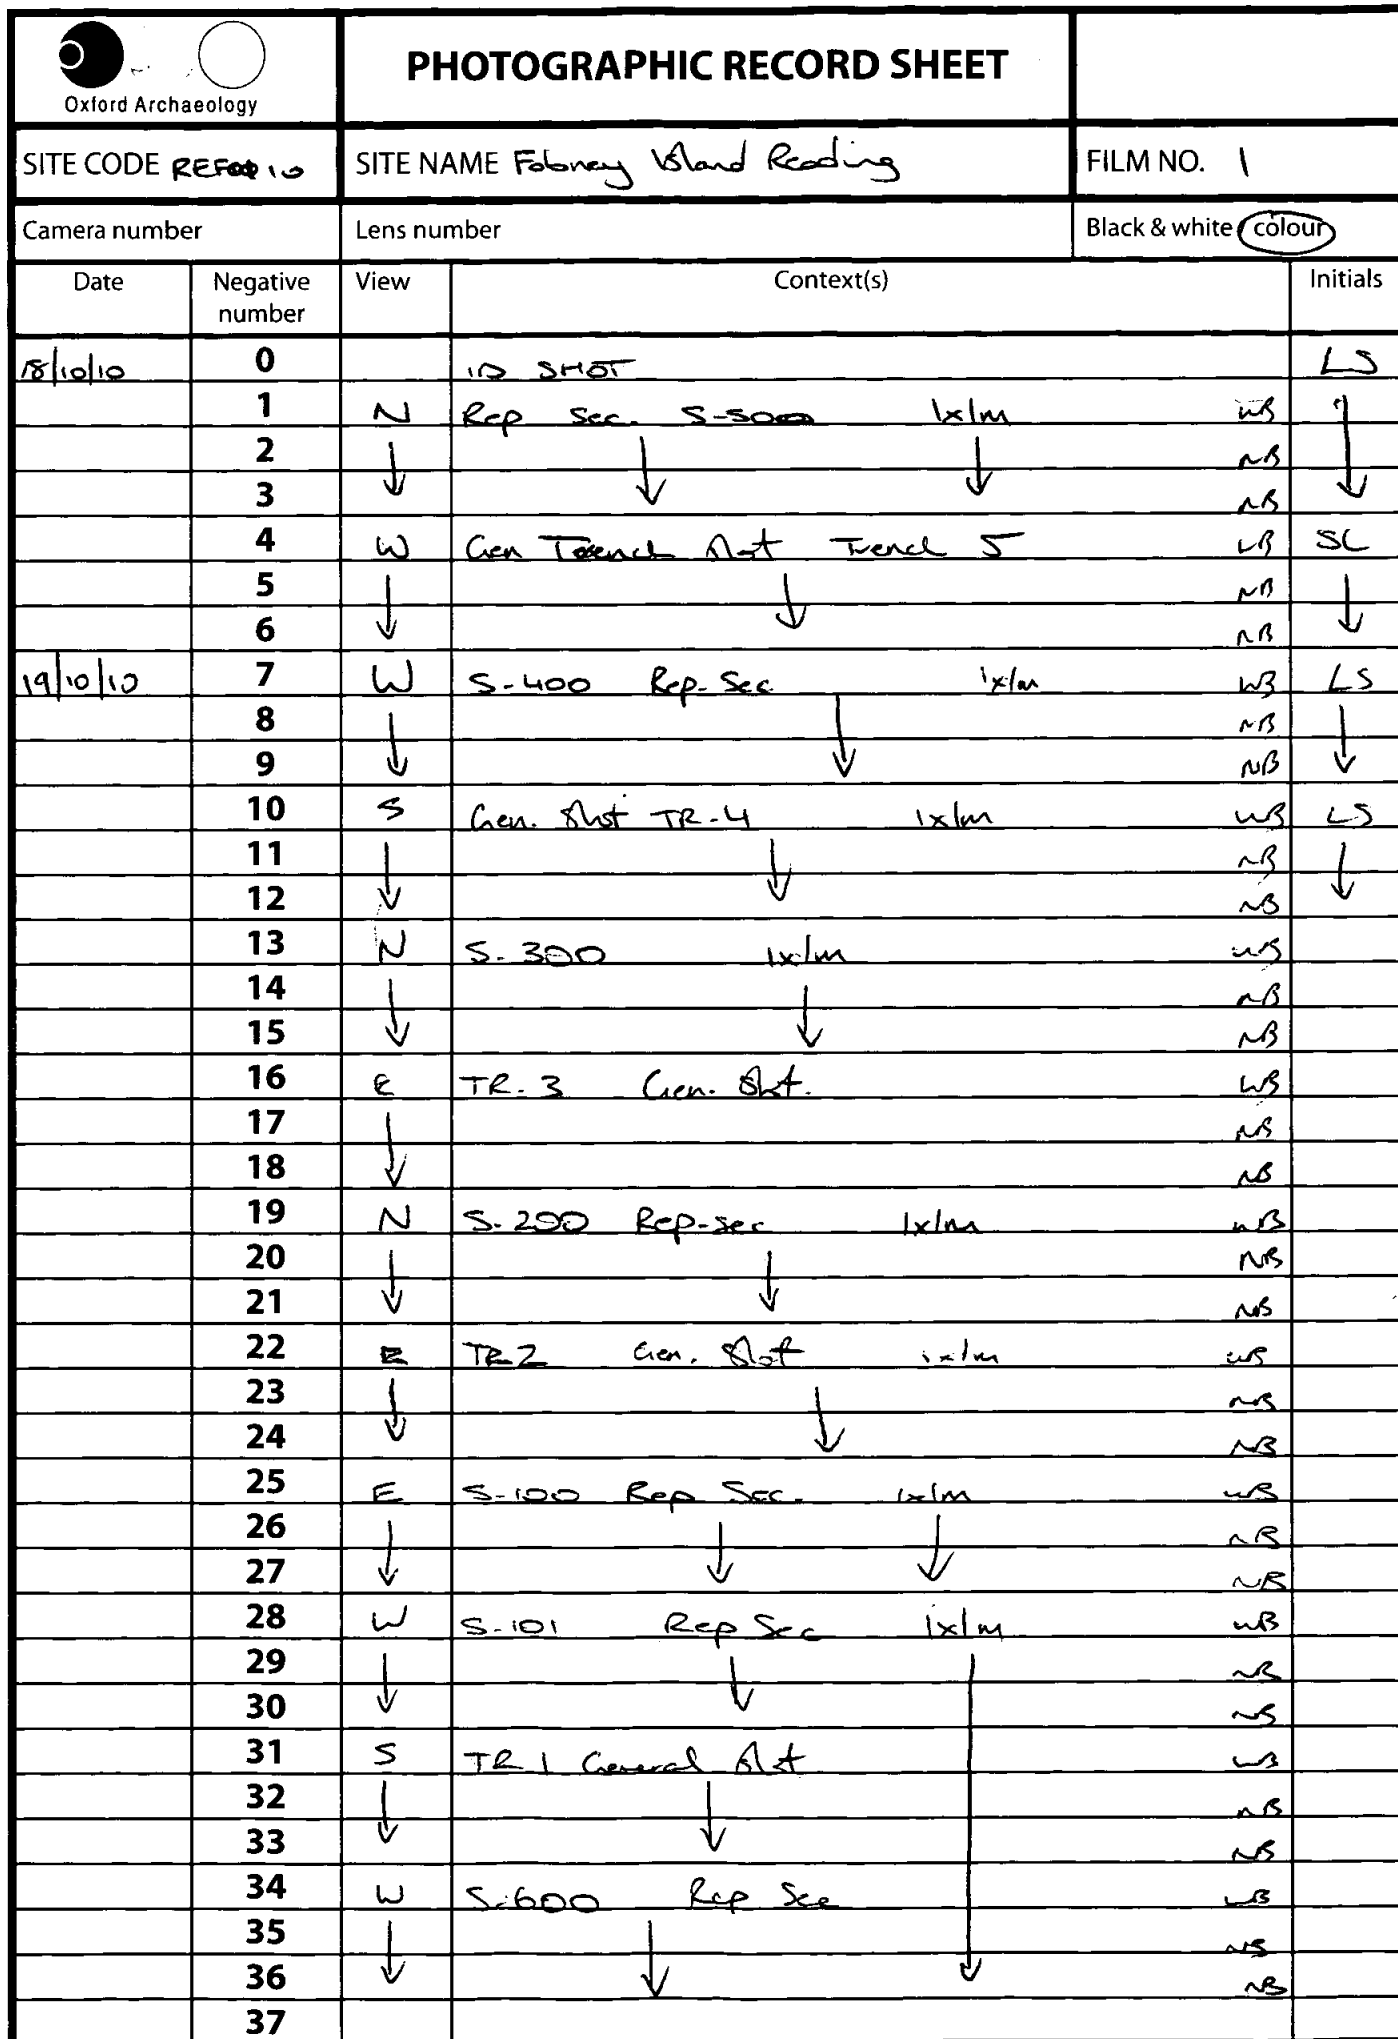 Oxford Archaeology
PHOTOGRAPHIC RECORD SHEET
SITE CODE SITE NAME Fobney Island Reading FILM NO. 1
Camera number Lens number Black & white colour
Date Negative number View Context(s) Initials
18/10/10 0 ID SHOT LS
1 N Rep Sec. S-500 1x1m WB
2 NB
3 NB
4 W Gen Trench Shot Trench 5 WB SC
5 NB
6 NB
19/10/10 7 W S-400 Rep-Sec 1x1m WB LS
8 NB
9 NB
10 S Gen. Shot TR-4 1x1m WB LS
11 NB
12 NB
13 N S-300 1x1m WB
14 NB
15 NB
16 E TR-3 Gen. Shot. WB
17 NB
18 NB
19 N S-200 Rep-sec 1x1m WB
20 NB
21 NB
22 E TR2 Gen. Shot 1x1m WB
23 NB
24 NB
25 E S-100 Rep Sec. 1x1m WB
26 NB
27 NB
28 W S-101 Rep Sec 1x1m WB
29 NB
30 NB
31 S TR1 General Shot WB
32 NB
33 NB
34 W S-600 Rep Sec WB
35 NB
36 NB
37